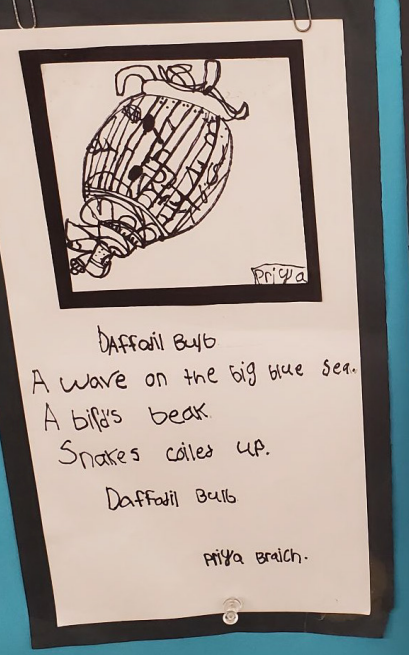 Priya
Daffodil Bulb
A wave on the big blue sea.
A bird's beak.
Snakes coiled up.
Daffodil Bulb
Priya Braich.